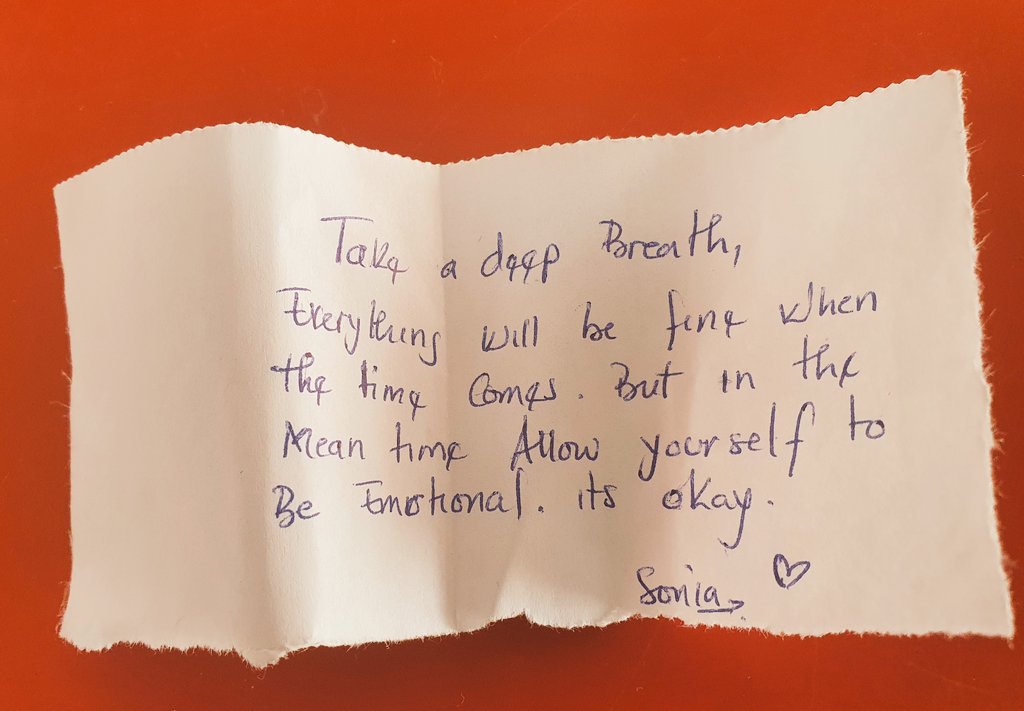 Take a deep Breath,
Everything will be fine when
the time Comes. But in the
Mean time Allow yourself to
Be Emotional. its okay.
Sonia